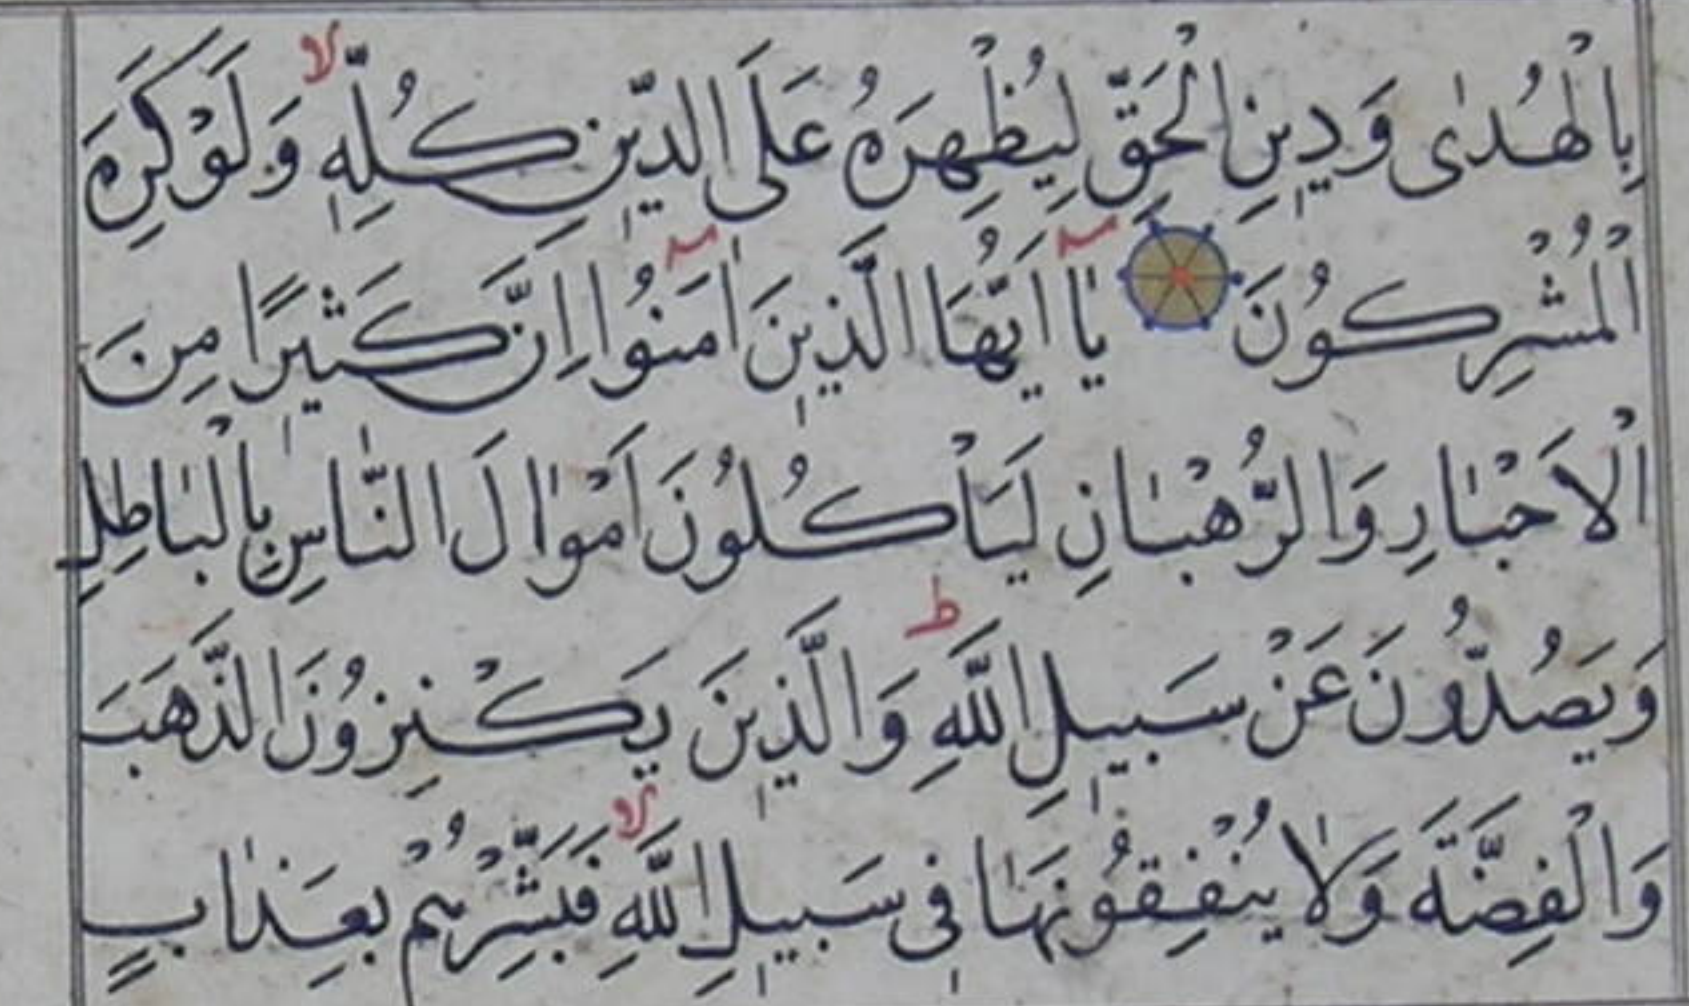 بِالْهُدٰى وَدِينِ الْحَقِّ لِيُظْهِرَهُ عَلَى الدِّينِ كُلِّهِ ۙ وَلَوْ كَرِهَ
الْمُشْرِكُونَ يَٰا اَيُّهَا الَّذِينَ اٰمَنُوا اِنَّ كَثِيرًا مِنَ
الْاَحْبَٰارِ وَالرُّهْبَٰانِ لَيَاْكُلُونَ اَمْوَٰالَ النَّٰاسِ بِالْبَٰاطِلِ
وَيَصُدُّونَ عَنْ سَبِيلِ اللَّهِ ۗ وَالَّذِينَ يَكْنِزُونَ الذَّهَبَ
وَالْفِضَّةَ وَلَٰا يُنْفِقُونَهَٰا فِي سَبِيلِ اللَّهِ ۙ فَبَشِّرْهُمْ بِعَذَٰابٍ